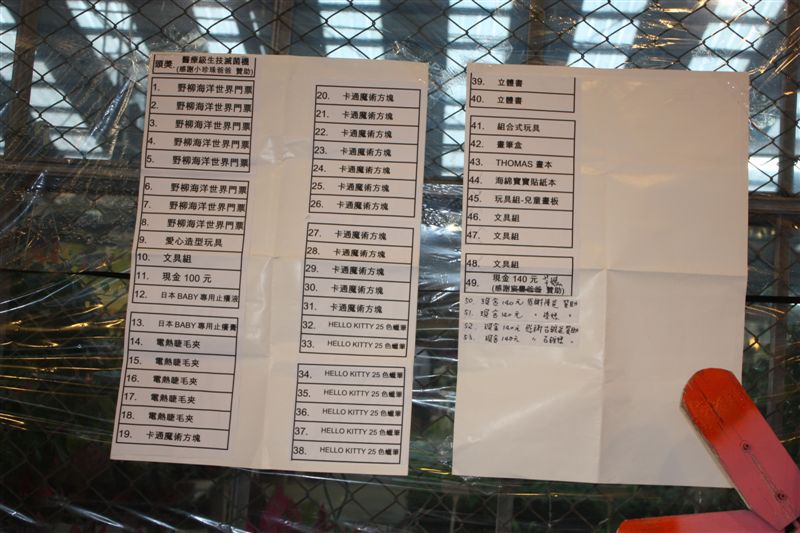 頭獎 醫療級生技滅菌機
(感謝小珍珠爸爸 贊助)
1. 野柳海洋世界門票
2. 野柳海洋世界門票
3. 野柳海洋世界門票
4. 野柳海洋世界門票
5. 野柳海洋世界門票
6. 野柳海洋世界門票
7. 野柳海洋世界門票
8. 野柳海洋世界門票
9. 愛心造型玩具
10. 文具組
11. 現金 100 元
12. 日本 BABY 專用止癢液
13. 日本 BABY 專用止癢膏
14. 電熱睫毛夾
15. 電熱睫毛夾
16. 電熱睫毛夾
17. 電熱睫毛夾
18. 電熱睫毛夾
19. 卡通魔術方塊
20. 卡通魔術方塊
21. 卡通魔術方塊
22. 卡通魔術方塊
23. 卡通魔術方塊
24. 卡通魔術方塊
25. 卡通魔術方塊
26. 卡通魔術方塊
27. 卡通魔術方塊
28. 卡通魔術方塊
29. 卡通魔術方塊
30. 卡通魔術方塊
31. 卡通魔術方塊
32. HELLO KITTY 25 色蠟筆
33. HELLO KITTY 25 色蠟筆
34. HELLO KITTY 25 色蠟筆
35. HELLO KITTY 25 色蠟筆
36. HELLO KITTY 25 色蠟筆
37. HELLO KITTY 25 色蠟筆
38. HELLO KITTY 25 色蠟筆
39. 立體書
40. 立體書
41. 組合式玩具
42. 畫筆盒
43. THOMAS 畫本
44. 海綿寶寶貼紙本
45. 玩具組-兒童畫板
46. 文具組
47. 文具組
48. 文具組
49. 現金 140 元
(感謝宸馨爸爸 贊助)
50. 現金 140元 感謝 贊助
51. 現金 140元 〃 〃
52. 現金 140元 感謝 贊助
53. 現金 140元 〃 〃